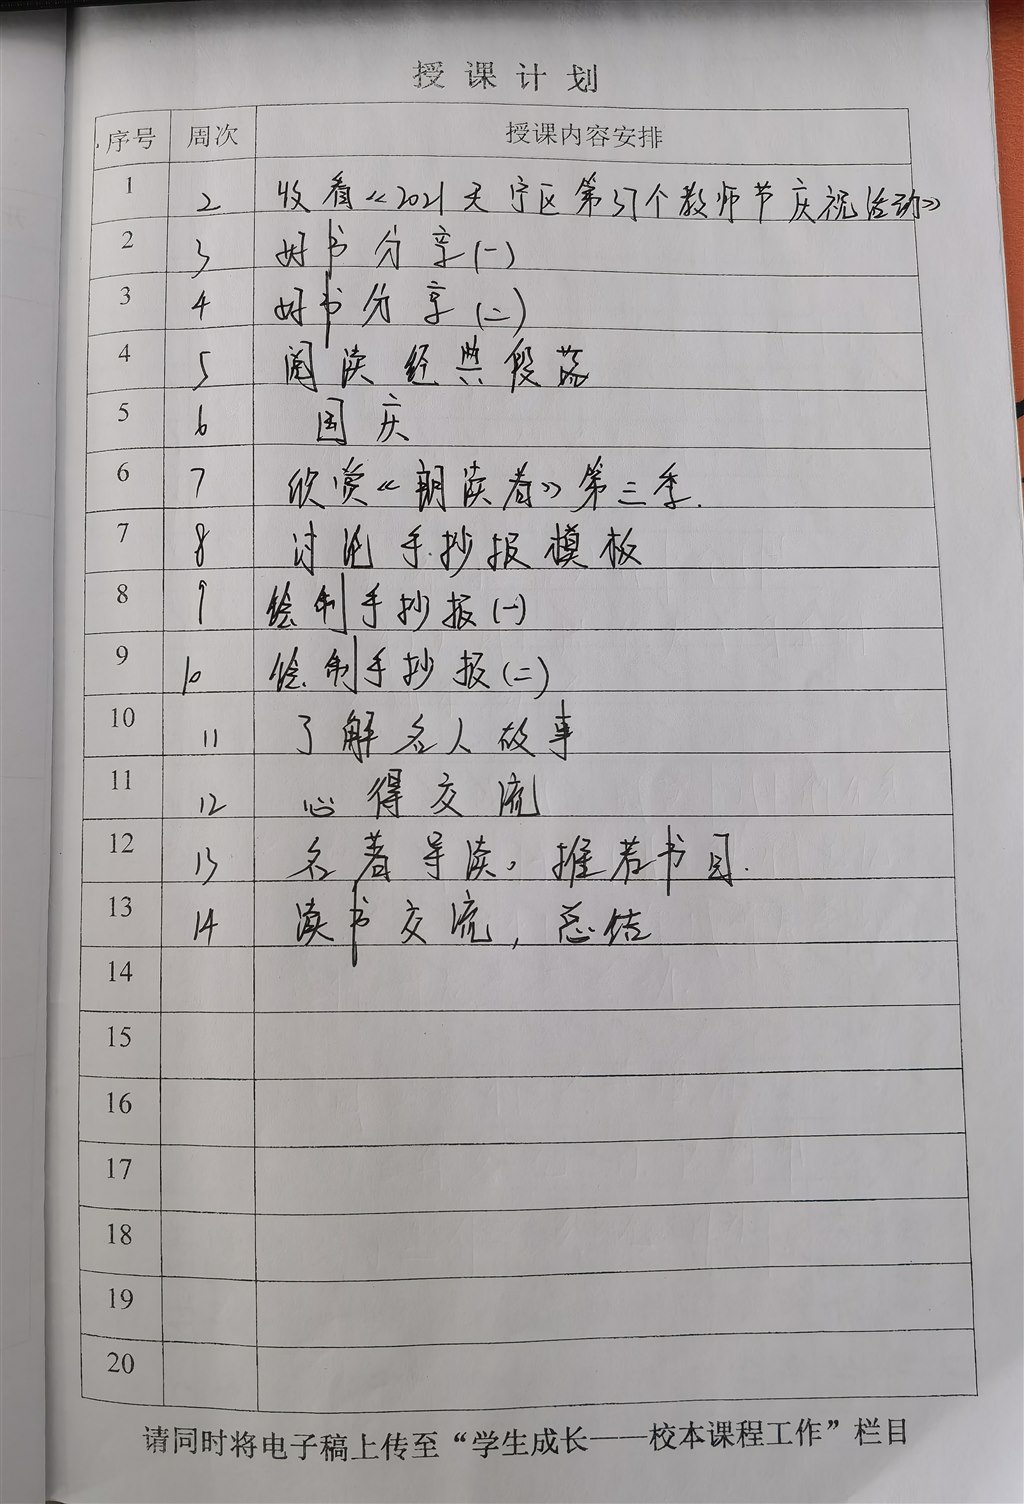 授课计划
序号 周次 授课内容安排
1 2 收看《2021天宁区第37个教师节庆祝活动》
2 3 好书分享(一)
3 4 好书分享(二)
4 5 阅读经典段落
5 6 国庆
6 7 欣赏《朗读者》第三季.
7 8 讨论手抄报模板
8 9 绘制手抄报(一)
9 10 绘制手抄报(二)
10 11 了解名人故事
11 12 心得交流
12 13 名著导读。推荐书目.
13 14 读书交流,总结
14
15
16
17
18
19
20
请同时将电子稿上传至“学生成长——校本课程工作”栏目